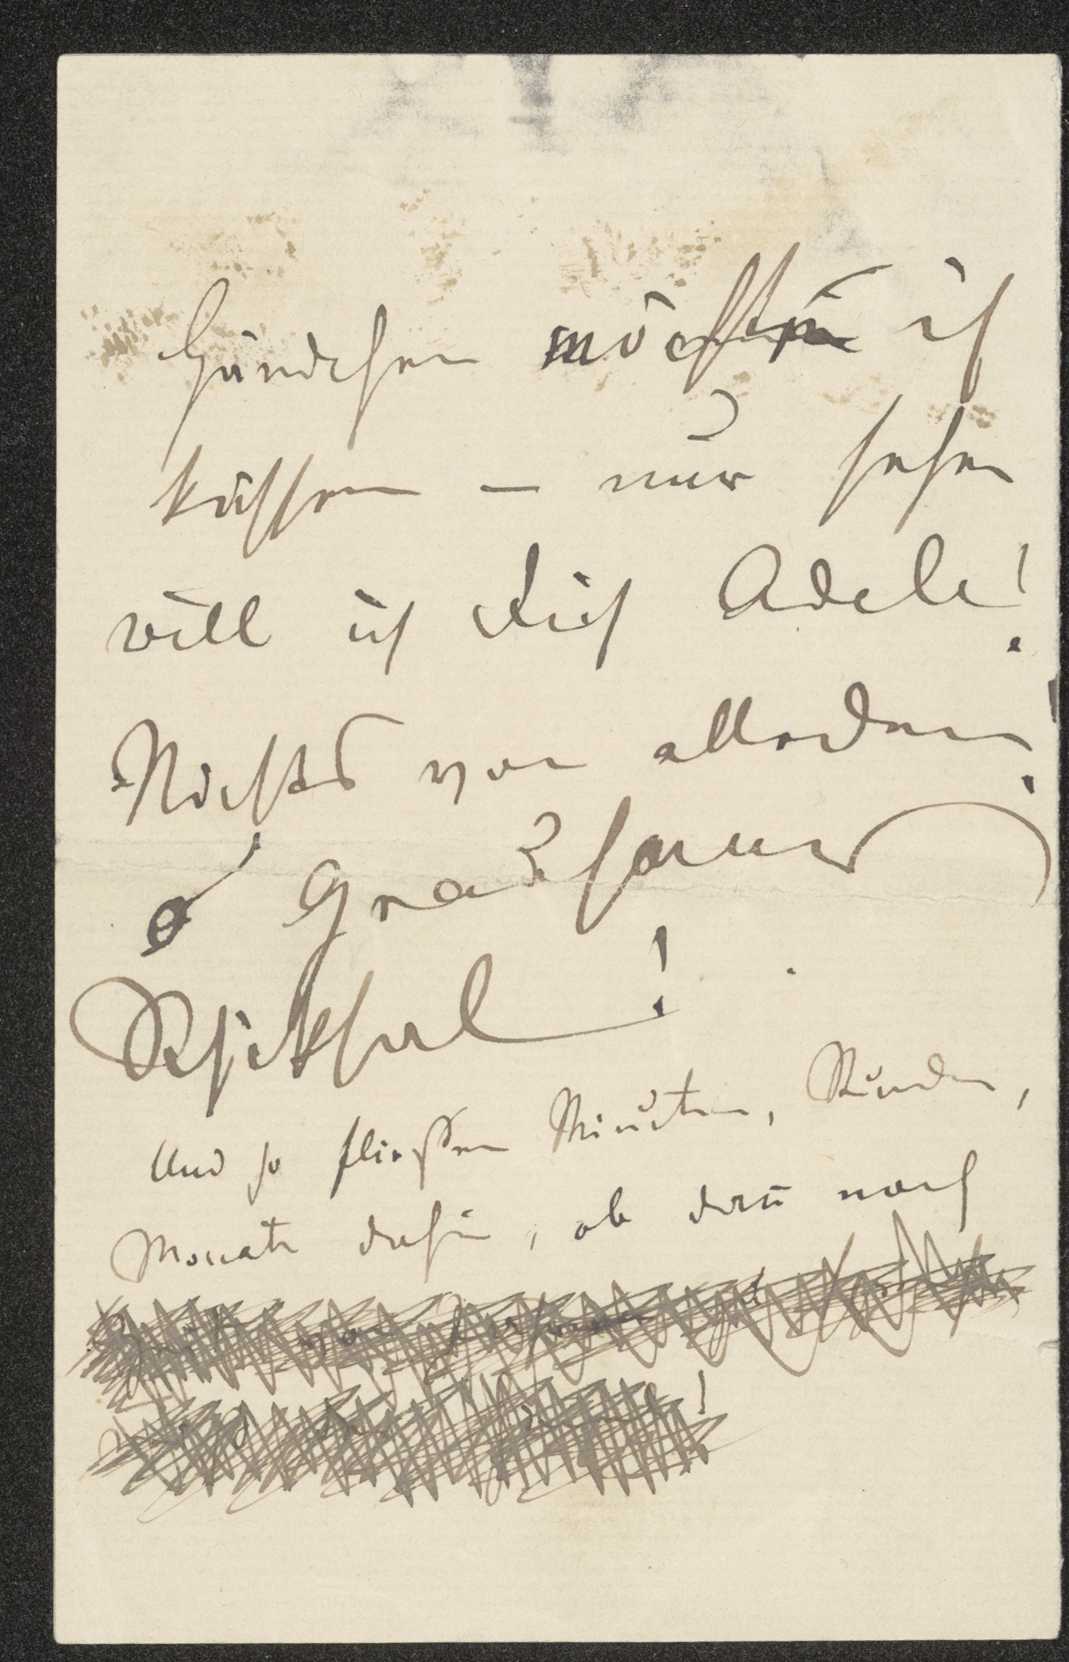 Händchen möchte ich
küssen – nur sehen
will ich Dich Adele!
Nichts von alledem!
o Grausames
Schiksal!
Und so fließen Minuten, Stunden,
Monate dahin, ob dau noch